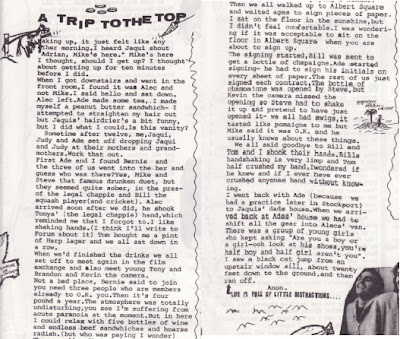 A TRIP TO THE TOP
Waking up, it just felt like any
other morning, I heard Jaqui shout
'Adrian, Mike's here.' Mike's here
I thought, should I get up? I thought
about getting up for ten minutes
before I did.
When I got downstairs and went in the
front room, I found it was Alec and
not Mike. I said hello and sat down,
Alec left. Ade made some tea, I made
myself a peanut butter sandwhich- I
attempted to straighten my hair out
but Jaquis' hairdrier's a bit funny,
but I did what I could. Is this vanity?
Sometime after twelve, me, Jaqui,
Judy and Ade set off dropping Jaqui
and Judy at their mothers and grand-
mothers. Work that out.
First Ade and I found Bernie and
the three of us went to the bar and
guess who was there? Yes, Mike and
Steve that famous drunken duet, but
they seemed quite sober, in the pres-
of the legal chappie and Bill the
squash player (and cricket). Alec
arrived soon after we did, he shook
Tonys' (the legal chappie) hand, which
reminded me that I forgot to. I like
shaking hands. (I think I'll write to
Forum about it) Tom bought me a pint
of Harp lager and we all sat down in
a row.
When we'd finished the drinks we all
set off to meet again in the film
exchange and also meet young Tony and
Brandon and Kevin the camera.
Not a bad place, Bernie said to join
you need three people who are members
already to O.K. you. Then it's four
pound a year. The atmosphere was totally
undisturbing, you see I'm suffering from
acute paranoia at the moment. But in here
I could relax with five bottles of wine
and endless beef sandwhiches and hoarse
radish. (but who was paying I wonder)
Then we all walked up to Albert Square
and waited ages to sign pieces of paper.
I sat on the floor in the sunshine, but
I didn't feel comfortable. I was wonderi-
ng if it was acceptable to sit on the
floor in Albert Square when you are
about to sign up.
The signing started, Bill was sent to
get a bottle of champaigne. Ade started
signing- he had to sign his initials on
every sheet of paper. The rest of us just
signed each contract. The bottle of
champaigne was opened by Steve, but
Kevin the camera missed the
opening so Steve had to shake
it up and pretend to have just
opened it- we all had swigs, it
tasted like pomaigne to me but
Mike said it was O.K. and he
usually knows about these things.
We all said goodbye to Bill and
Tom and I shook their hands. Bills
handshaking is very limp and Tom
half crushed my hand, I wondered if
he knew and if I ever have ever
crushed anyones hand without know-
ing.
I went back with Ade (because we
had a practice later in Stockport)
to Jaquis' dads house. When we arri-
ved back at Ades' house we had to
shift all the gear into Alecs' van.
There was a group of young girls
who kept asking 'Are you a boy or
a girl-ooh look at his shoes, you're
half boy and half girl aren't you'.
I saw a black cat jump from an
upstair window sill, about twenty
feet down to the ground, and then
ran off.
Anon.
LIFE IS FULL OF LITTLE DISTRACTIONS....